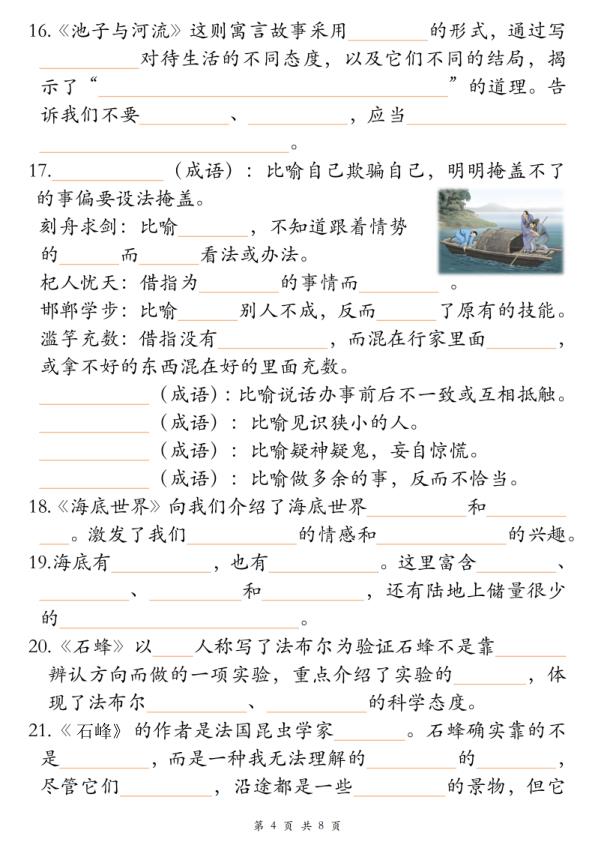 16.《池子与河流》这则寓言故事采用________的形式，通过写
__________对待生活的不同态度，以及它们不同的结局，揭
示了“___________________________________”的道理。告
诉我们不要_________、__________，应当________________
_________________________。
17.___________（成语）：比喻自己欺骗自己，明明掩盖不了
的事偏要设法掩盖。
刻舟求剑：比喻_______，不知道跟着情势
的______而______看法或办法。
杞人忧天：借指为________的事情而________ 。
邯郸学步：比喻______别人不成，反而______了原有的技能。
滥竽充数：借指没有___________，而混在行家里面_______，
或拿不好的东西混在好的里面充数。
___________（成语）：比喻说话办事前后不一致或互相抵触。
___________（成语）：比喻见识狭小的人。
___________（成语）：比喻疑神疑鬼，妄自惊慌。
___________（成语）：比喻做多余的事，反而不恰当。
18.《海底世界》向我们介绍了海底世界__________和________
___。激发了我们___________的情感和_____________的兴趣。
19.海底有__________，也有___________。这里富含________、
_________、_________和__________，还有陆地上储量很少
的________________________。
20.《石蜂》以____人称写了法布尔为验证石蜂不是靠_______
辨认方向而做的一项实验，重点介绍了实验的_______，体
现了法布尔__________、___________的科学态度。
21.《 石峰》的作者是法国昆虫学家_______。石蜂确实靠的不
是_________，而是一种我无法理解的_________的________，
尽管它们_________，沿途都是一些_________的景物，但它
第 4 页 共 8 页